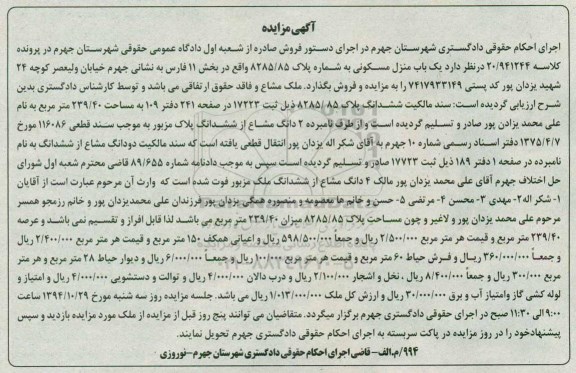 آگهی مزایده
اجرای احکام حقوقی دادگستری شهرستان جهرم در اجرای دستور فروش صادره از شعبه اول دادگاه عمومی حقوقی شهرستان جهرم در پرونده
کلاسه ۲۰/۹۴۱۲۴۴ درنظر دارد یک باب منزل مسکونی به شماره پلاک ۸۲۸۵/۸۵ واقع در بخش ۱۱ فارس به نشانی جهرم خیابان ولیعصر کوچه ۲۴
شهید یزدان پور کد پستی ۷۴۱۷۹۳۳۱۴۹ را به مزایده و فروش بگذارد. ملک مشاع و فاقد حقوق ارتفاقی می باشد و توسط کارشناس دادگستری بدین
شرح ارزیابی گردیده است: سند مالکیت ششدانگ پلاک ۸۲۸۵/۸۵ ذیل ثبت ۱۷۲۲۳ در صفحه ۲۴۱ دفتر ۱۰۹ به مساحت ۲۳۹/۴۰ متر مربع به نام
علی محمد یزدان پور صادر و تسلیم گردیده است و از طرف نامبرده ۲ دانگ مشاع از ششدانگ پلاک مزبور به موجب سند قطعی ۱۱۶۰۸۶ مورخ
۱۳۷۵/۴/۷ دفتر اسناد رسمی شماره ۱۰ جهرم به آقای شکر اله یزدان پور انتقال قطعی یافته است که سند مالکیت دودانگ مشاع از ششدانگ به نام
نامبرده در صفحه ۱ دفتر ۱۸۹ ذیل ثبت ۱۷۷۲۳ صادر و تسلیم گردیده است سپس به موجب دادنامه شماره ۸۹/۶۵۵ قاضی محترم شعبه اول شورای
حل اختلاف جهرم آقای علی محمد یزدان پور مالک ۴ دانگ مشاع از ششدانگ ملک مزبور فوت شده است که وراث آن مرحوم عبارت است از آقایان
۱- شکر اله ۲- مهدی ۳- محسن ۴- مرتضی ۵- حسن و خانم ها معصومه و منصوره همگی یزدان پور فرزندان علی محمدیزدان پور و خانم رزمجو همسر
مرحوم علی محمد یزدان پور و لاغیر و چون مساحت پلاک ۸۲۸۵/۸۵ میزان ۲۳۹/۴۰ متر مربع می باشد لذا قابل افراز و تقسیم نمی باشد و عرصه
۲۳۹/۴۰ متر مربع و قیمت هر متر مربع ۲/۵۰۰/۰۰۰ ریال و جمعاً ۵۹۸/۵۰۰/۰۰۰ ریال و اعیانی همکف ۱۵۰ متر مربع و قیمت هر متر مربع ۲/۴۰۰/۰۰۰ ریال
و جمعاً ۳۶۰/۰۰۰/۰۰۰ ریال و فرش حیاط ۶۰ متر مربع و قیمت هر متر مربع ۱۰۰/۰۰۰ ریال و جمعاً ۶/۰۰۰/۰۰۰ ریال و دیوار حیاط ۲۸ متر مربع و هر متر
مربع ۳۰۰/۰۰۰ ریال و جمعاً ۸/۴۰۰/۰۰۰ ریال ، نخل و اشجار ۲/۱۰۰/۰۰۰ ریال و درب دالان ۴/۰۰۰/۰۰۰ ریال و توالت و دستشویی ۴/۰۰۰/۰۰۰ ریال و امتیاز و
لوله کشی گاز وامتیاز آب و برق ۳۰/۰۰۰/۰۰۰ ریال و ارزش کل ملک ۱/۰۱۳/۰۰۰/۰۰۰ ریال می باشد. جلسه مزایده روز سه شنبه مورخ ۱۳۹۴/۱۰/۲۹ ساعت
۹:۰۰ الی ۱۱:۳۰ صبح در اجرای احکام حقوقی دادگستری جهرم برگزار میگردد. متقاضیان می توانند پنج روز قبل از مزایده از ملک مورد مزایده بازدید و سپس
پیشنهادخود را در روز مزایده در پاکت سربسته به اجرای احکام حقوقی دادگستری جهرم تحویل نمایند.
۹۹۴/م.الف- قاضی اجرای احکام حقوقی دادگستری شهرستان جهرم-نوروزی